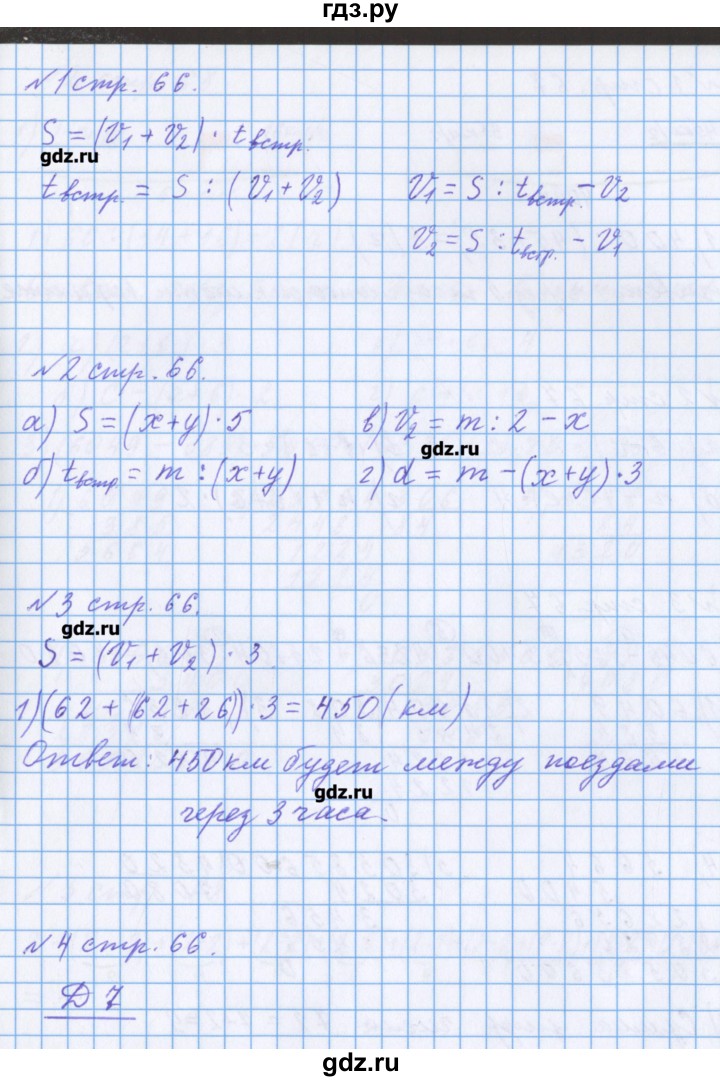 гдз.ру
№1 стр. 66.
S = (V₁ + V₂) · tвстр.
gdz.ru
tвстр. = S : (V₁ + V₂) V₁ = S : tвстр. – V₂
V₂ = S : tвстр. – V₁
№2 стр. 66.
а) S = (x+y) · 5 в) V₂ = m : 2 – x
gdz.ru
б) tвстр. = m : (x+y) г) d = m – (x+y) · 3
№3 стр. 66.
gdz.ru
S = (V₁ + V₂) · 3
1) (62 + (62 + 26)) · 3 = 450 (км)
Ответ: 450 км будет между поездами
gdz.ru
через 3 часа.
№4 стр. 66.
Д 7
gdz.ru